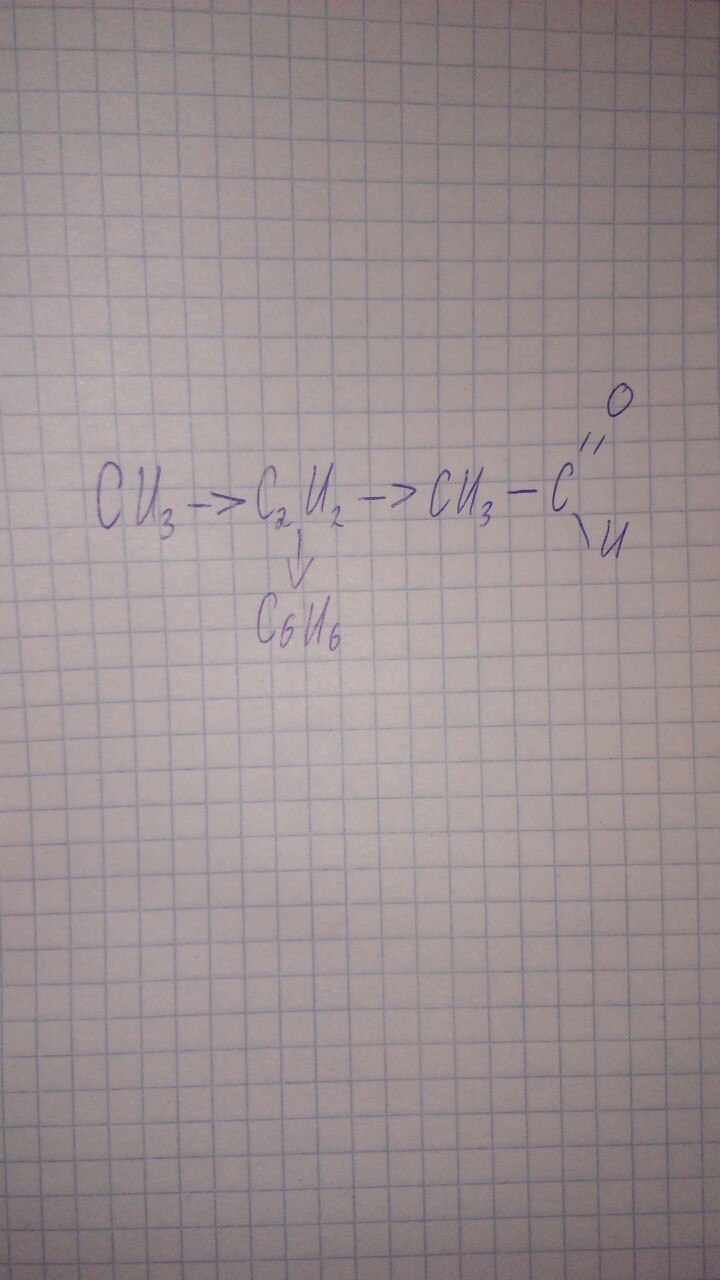 O
CH₃ -> C₂H₂ -> CH₃ - C
H
C₆H₆